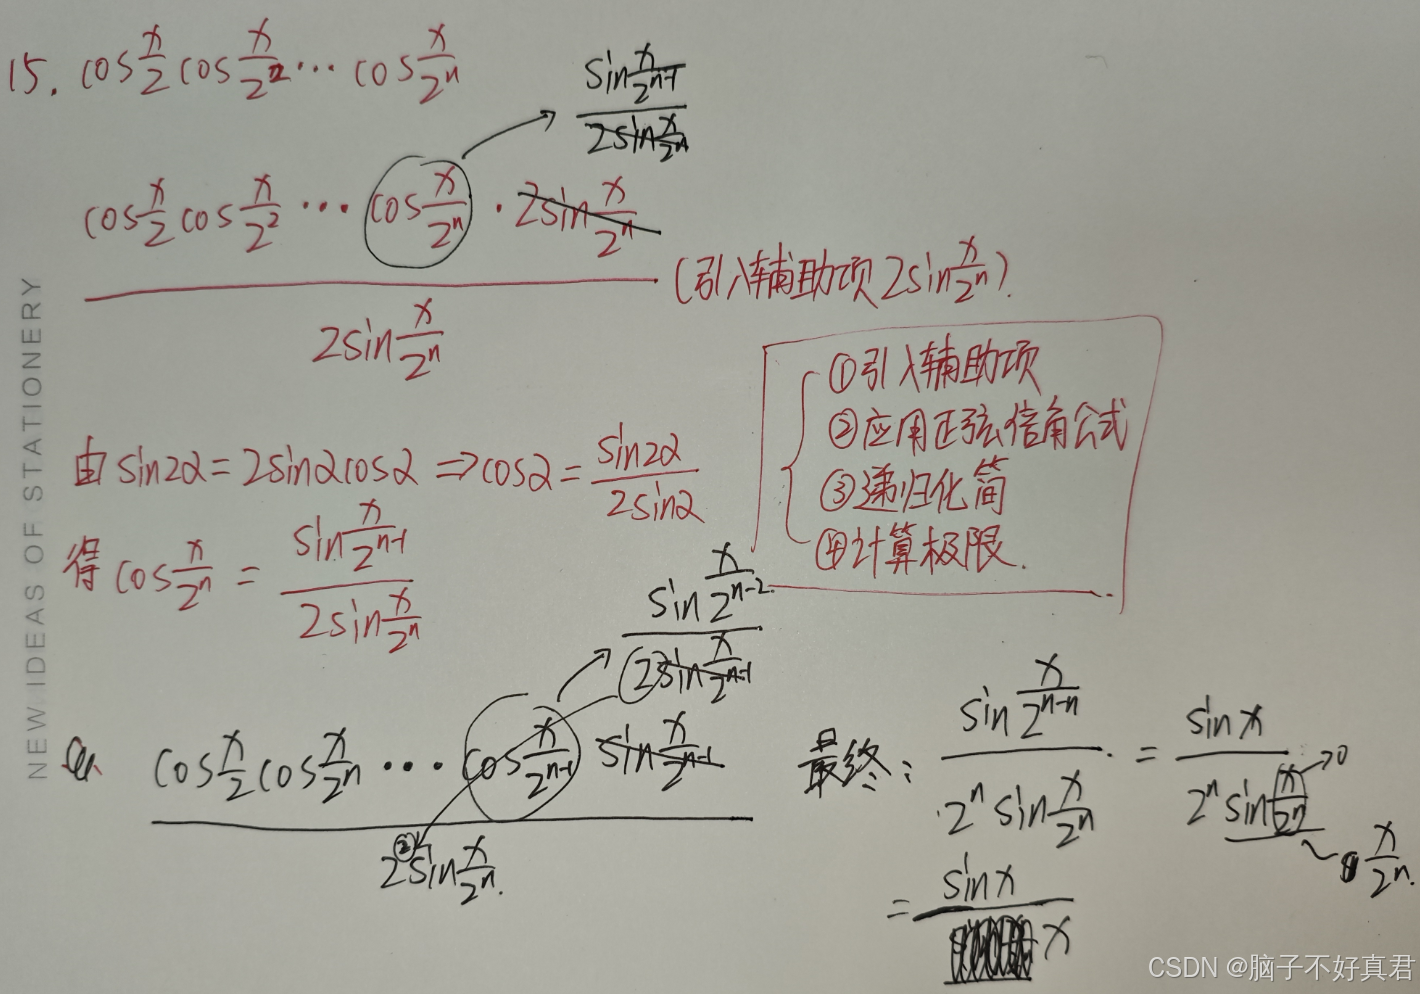 15. cos x/2 cos x/2² ··· cos x/2ⁿ
sin x/2ⁿ⁻¹ / 2sin x/2ⁿ
cos x/2 cos x/2² ··· cos x/2ⁿ · 2sin x/2ⁿ
2sin x/2ⁿ
(引入辅助项 2sin x/2ⁿ).
①引入辅助项
②应用正弦信角公式
③递归化简
④计算极限.
由 sin2α = 2sinαcosα ⇒ cosα = sin2α / 2sinα
得 cos x/2ⁿ = sin x/2ⁿ⁻¹ / 2sin x/2ⁿ
sin x/2ⁿ⁻² / 2sin x/2ⁿ⁻¹
cos x/2 cos x/2ⁿ ··· cos x/2ⁿ⁻¹ sin x/2ⁿ⁻¹
2② sin x/2ⁿ.
最终: sin x/2ⁿ⁻ⁿ / 2ⁿ sin x/2ⁿ = sin x / 2ⁿ sin x/2ⁿ → 0
~ x/2ⁿ.
= sin x / x
NEW IDEAS OF STATIONERY
CSDN @脑子不好真君